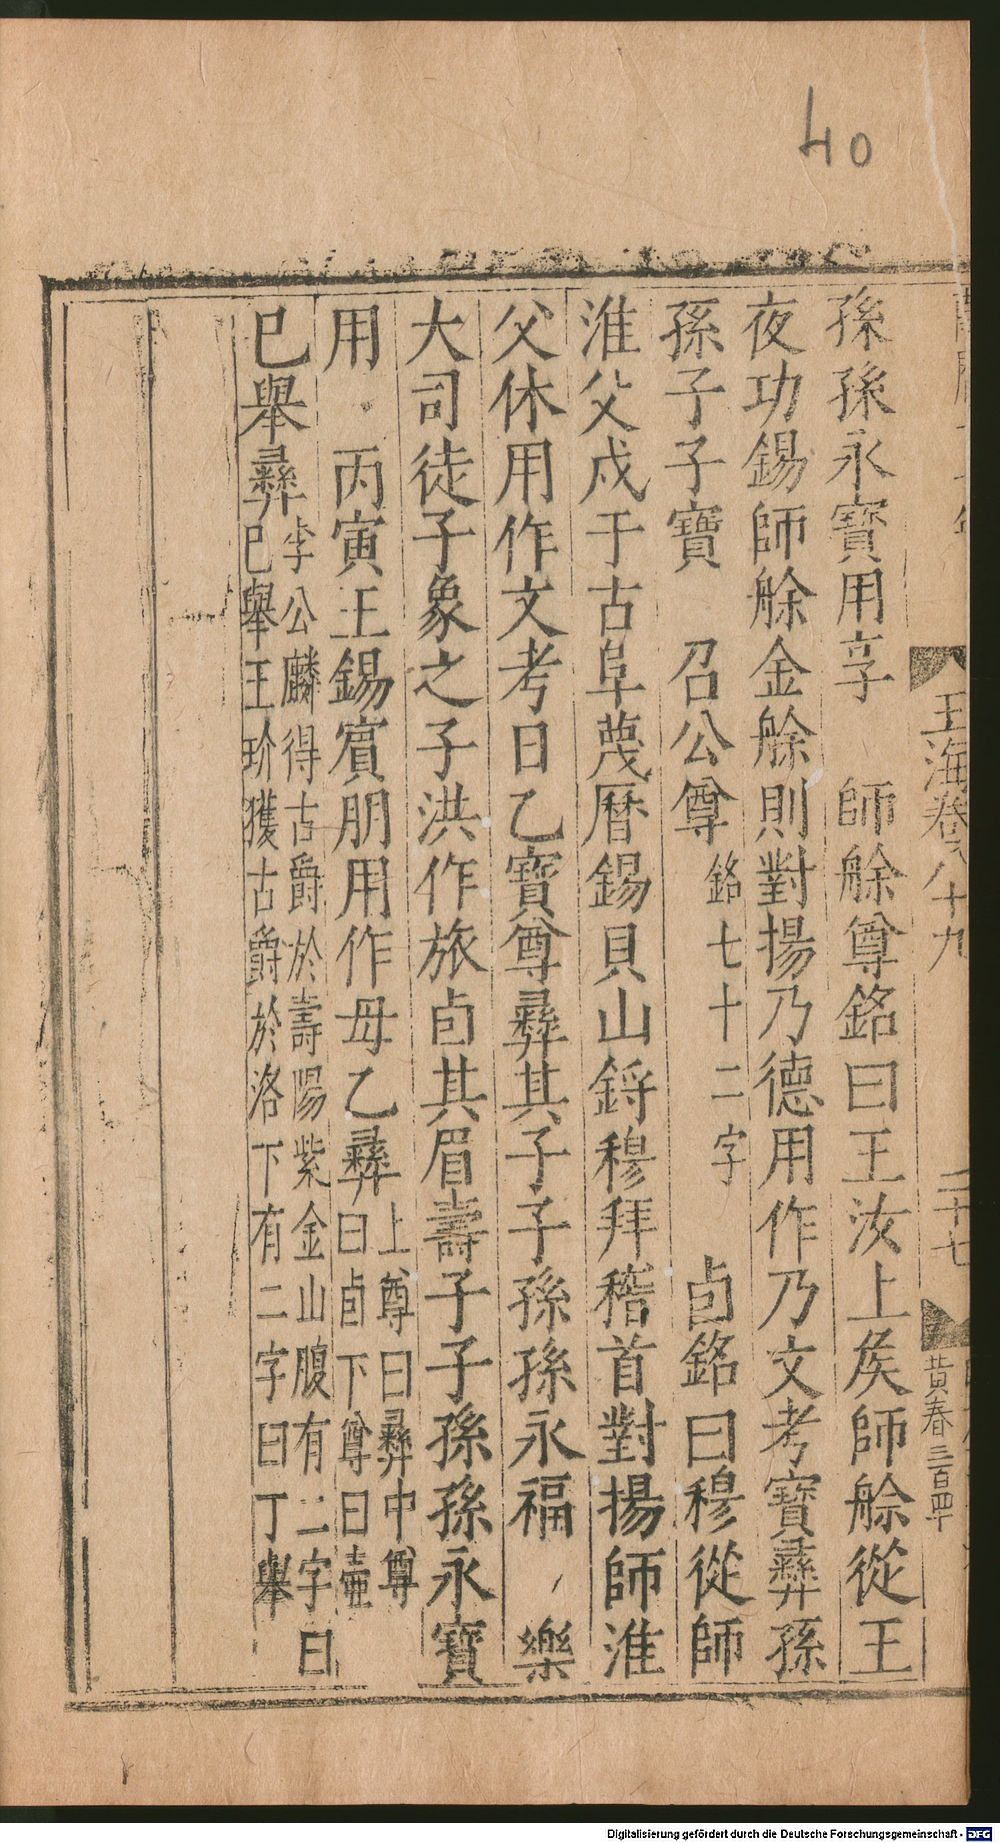 40
玉海卷八十九
二十七
黄春三百四十
孫孫永寶用享　師艅尊銘曰王汝上矦師艅從王
夜功錫師艅金艅則對揚乃德用作乃文考寶彝孫
孫子子寶　召公尊銘七十二字　卣銘曰穆從師
淮父戍于古阜蔑曆錫貝山鋝穆拜稽首對揚師淮
父休用作文考日乙寶尊彝其子子孫孫永福　樂
大司徒子象之子洪作旅卣其眉壽子子孫孫永寶
用　丙寅王錫賓朋用作母乙彝上尊曰彝中尊
曰卣下尊曰壺
巳舉彝李公麟得古爵於壽陽紫金山腹有二字曰
巳舉王玠獲古爵於洛下有二字曰丁舉
Digitalisierung gefördert durch die Deutsche Forschungsgemeinschaft - DFG